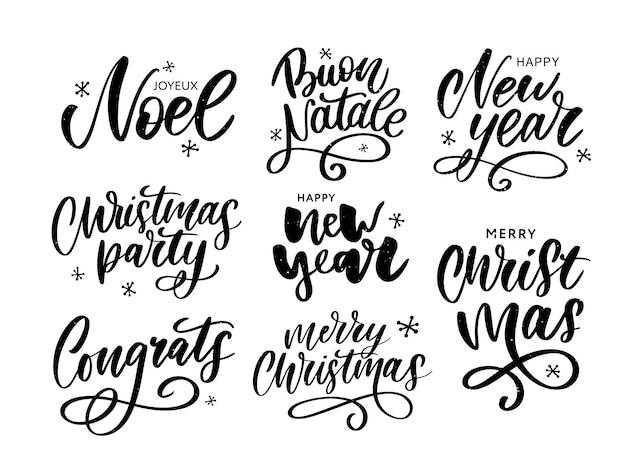 JOYEUX
Noel
Buon
Natale
HAPPY
New
year
Christmas
party
HAPPY
new
year
MERRY
Christ
mas
Congrats
merry
Christmas